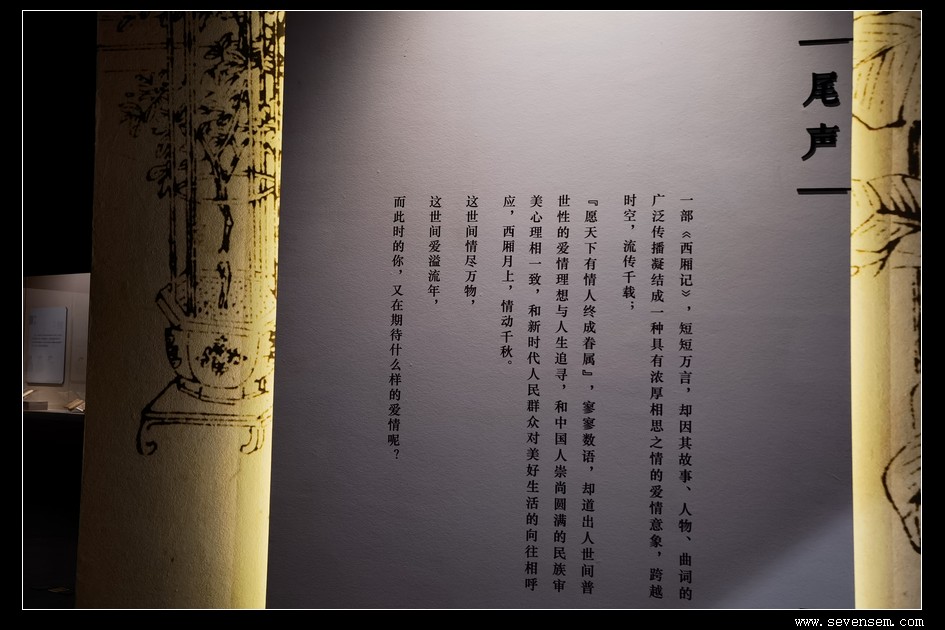 尾声
一部《西厢记》，短短万言，却因其故事、人物、曲词的
广泛传播凝结成一种具有浓厚相思之情的爱情意象，跨越
时空，流传千载；
『愿天下有情人终成眷属』，寥寥数语，却道出人世间普
世性的爱情理想与人生追寻，和中国人崇尚圆满的民族审
美心理相一致，和新时代人民群众对美好生活的向往相呼
应，西厢月上，情动千秋。
这世间情尽万物，
这世间爱溢流年，
而此时的你，又在期待什么样的爱情呢？
www.sevensem.com